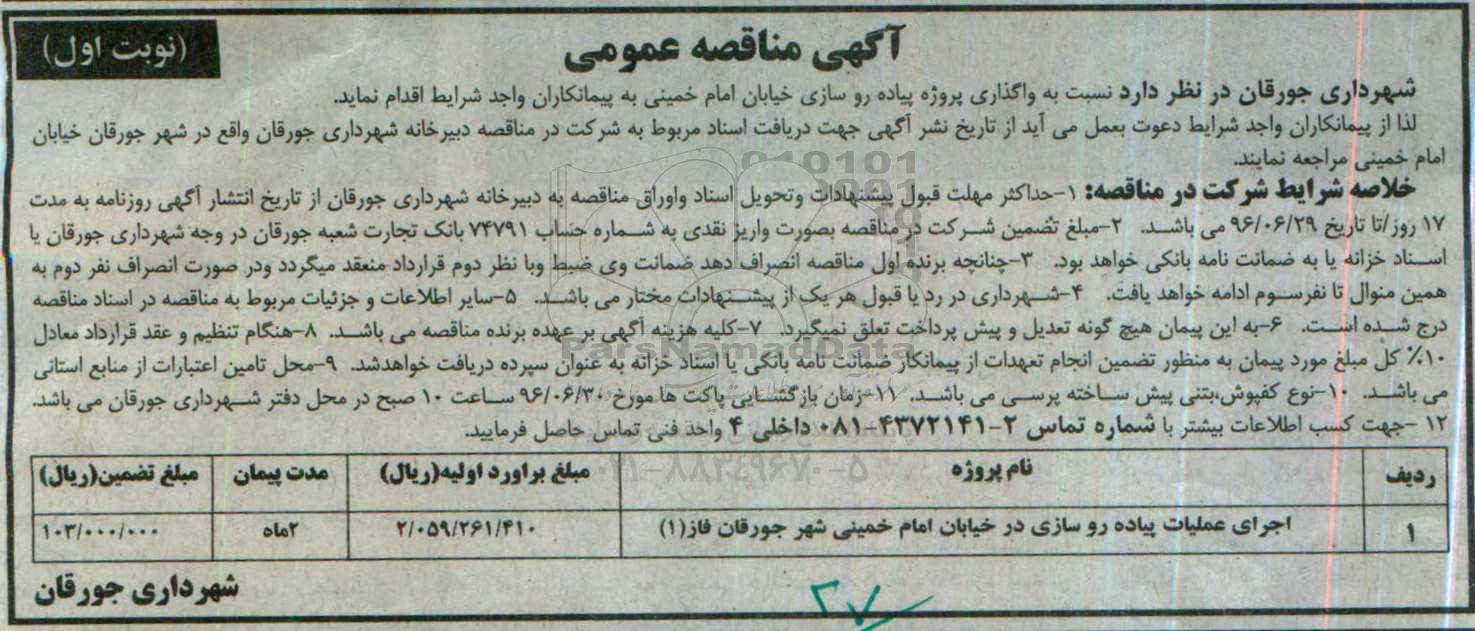 آگهی مناقصه عمومی
(نوبت اول)
شهرداری جورقان در نظر دارد نسبت به واگذاری پروژه پیاده رو سازی خیابان امام خمینی به پیمانکاران واجد شرایط اقدام نماید.
لذا از پیمانکاران واجد شرایط دعوت بعمل می آید از تاریخ نشر آگهی جهت دریافت اسناد مربوط به شرکت در مناقصه دبیرخانه شهرداری جورقان واقع در شهر جورقان خیابان
امام خمینی مراجعه نمایند.
خلاصه شرایط شرکت در مناقصه: ۱-حداکثر مهلت قبول پیشنهادات وتحویل اسناد واوراق مناقصه به دبیرخانه شهرداری جورقان از تاریخ انتشار آگهی روزنامه به مدت
۱۷ روز/تا تاریخ ۹۶/۰۶/۲۹ می باشد. ۲-مبلغ تضمین شرکت در مناقصه بصورت واریز نقدی به شماره حساب ۷۴۷۹۱ بانک تجارت شعبه جورقان در وجه شهرداری جورقان یا
اسناد خزانه یا به ضمانت نامه بانکی خواهد بود. ۳-چنانچه برنده اول مناقصه انصراف دهد ضمانت وی ضبط وبا نظر دوم قرارداد منعقد میگردد ودر صورت انصراف نفر دوم به
همین منوال تا نفرسوم ادامه خواهد یافت. ۴-شهرداری در رد یا قبول هر یک از پیشنهادات مختار می باشد. ۵-سایر اطلاعات و جزئیات مربوط به مناقصه در اسناد مناقصه
درج شده است. ۶-به این پیمان هیچ گونه تعدیل و پیش پرداخت تعلق نمیگیرد. ۷-کلیه هزینه آگهی بر عهده برنده مناقصه می باشد. ۸-هنگام تنظیم و عقد قرارداد معادل
۱۰٪ کل مبلغ مورد پیمان به منظور تضمین انجام تعهدات از پیمانکار ضمانت نامه بانکی یا اسناد خزانه به عنوان سپرده دریافت خواهدشد. ۹-محل تامین اعتبارات از منابع استانی
می باشد. ۱۰-نوع کفپوش،بتنی پیش ساخته پرسی می باشد. ۱۱-زمان بازگشایی پاکت ها مورخ ۹۶/۰۶/۳۰ ساعت ۱۰ صبح در محل دفتر شهرداری جورقان می باشد.
۱۲ -جهت کسب اطلاعات بیشتر با شماره تماس ۲-۰۸۱-۴۳۷۲۱۴۱ داخلی ۴ واحد فنی تماس حاصل فرمایید.
ردیف نام پروژه مبلغ براورد اولیه(ریال) مدت پیمان مبلغ تضمین(ریال)
۱ اجرای عملیات پیاده رو سازی در خیابان امام خمینی شهر جورقان فاز(۱) ۲/۰۵۹/۲۶۱/۴۱۰ ۲ماه ۱۰۳/۰۰۰/۰۰۰
شهرداری جورقان
۲۷
ParsNamadData
۰۲۱-۸۸۳۴۹۶۷۰-۵